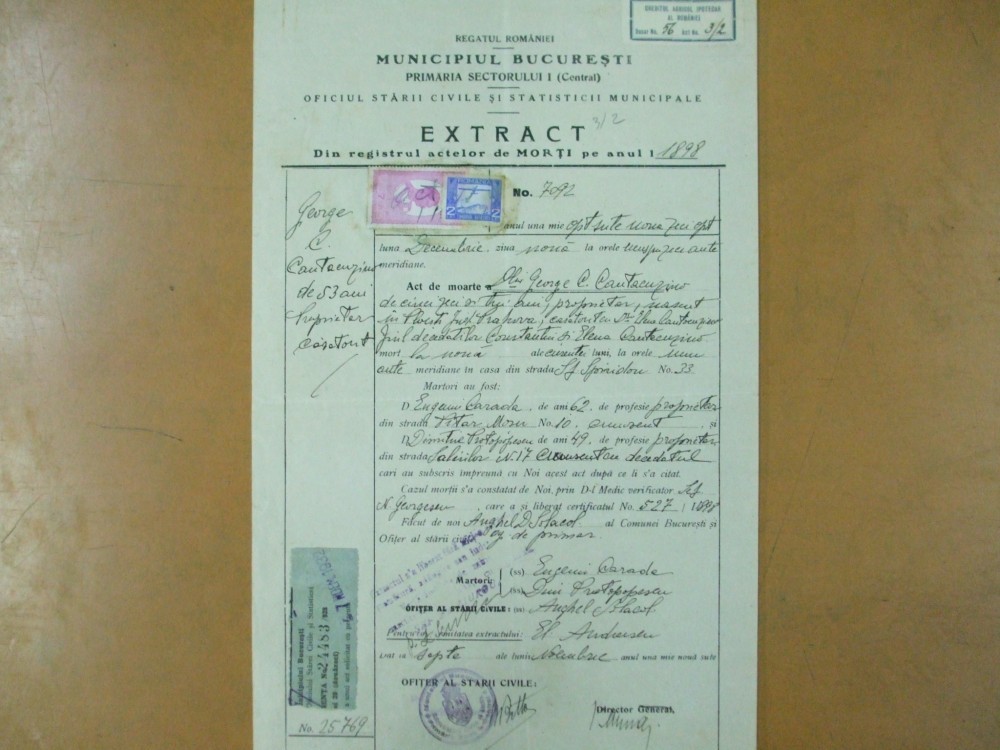 CREDITUL AGRICOL IPOTECAR
AL ROMÂNIEI
Dosar No. 56 Act No. 3/2
REGATUL ROMÂNIEI
MUNICIPIUL BUCUREȘTI
PRIMĂRIA SECTORULUI I (Central)
OFICIUL STĂRII CIVILE ȘI STATISTICII MUNICIPALE
3/2
EXTRACT
Din registrul actelor de MORȚI pe anul 1 1898
No. 7092
George
C.
Cantacuzino
de 53 ani
Proprietar
căsătorit
anul una mie opt sute nouă zeci opt
luna Decembrie, ziua nouă, la orele unsprezeci ante
meridiane.
Act de moarte a Dlui George C. Cantacuzino
de cinci zeci și trei ani, proprietar, născut
în Ploești Jud. Prahova, căsătorit cu Dna Elena Cantacuzino
fiul decedaților Constantin și Elena Cantacuzino
mort la nouă ale curentei luni, la orele unu
ante meridiane în casa din strada Sf. Spiridon No. 33.
Martori au fost:
D Eugeniu Carada, de ani 62, de profesie proprietar
din strada Pitar Moșu No. 10, cunoscut, și
D. Dimitrie Protopopescu de ani 49, de profesie proprietar
din strada N. 17 cunoscut cu decedatul
cari au subscris împreună cu Noi acest act după ce li s'a citat.
Cazul morții s'a constatat de Noi, prin D-l Medic verificator
N. Georgescu, care a și liberat certificatul No. 527 / 1898
Făcut de noi Anghel D. Solacol al Comunei București și
Ofițer al stării civile de primar.
Martori: (ss) Eugeniu Carada
(ss) Dim Protopopescu
OFIȚER AL STĂRII CIVILE: (ss) Anghel Solacol
Pentru conformitatea extractului: El. Andreescu
Dat la șapte ale lunii Noembrie anul una mie nouă sute
OFIȚER AL STĂRII CIVILE:
Director General,
No. 24483
No. 25769
ROMANIA
2 2